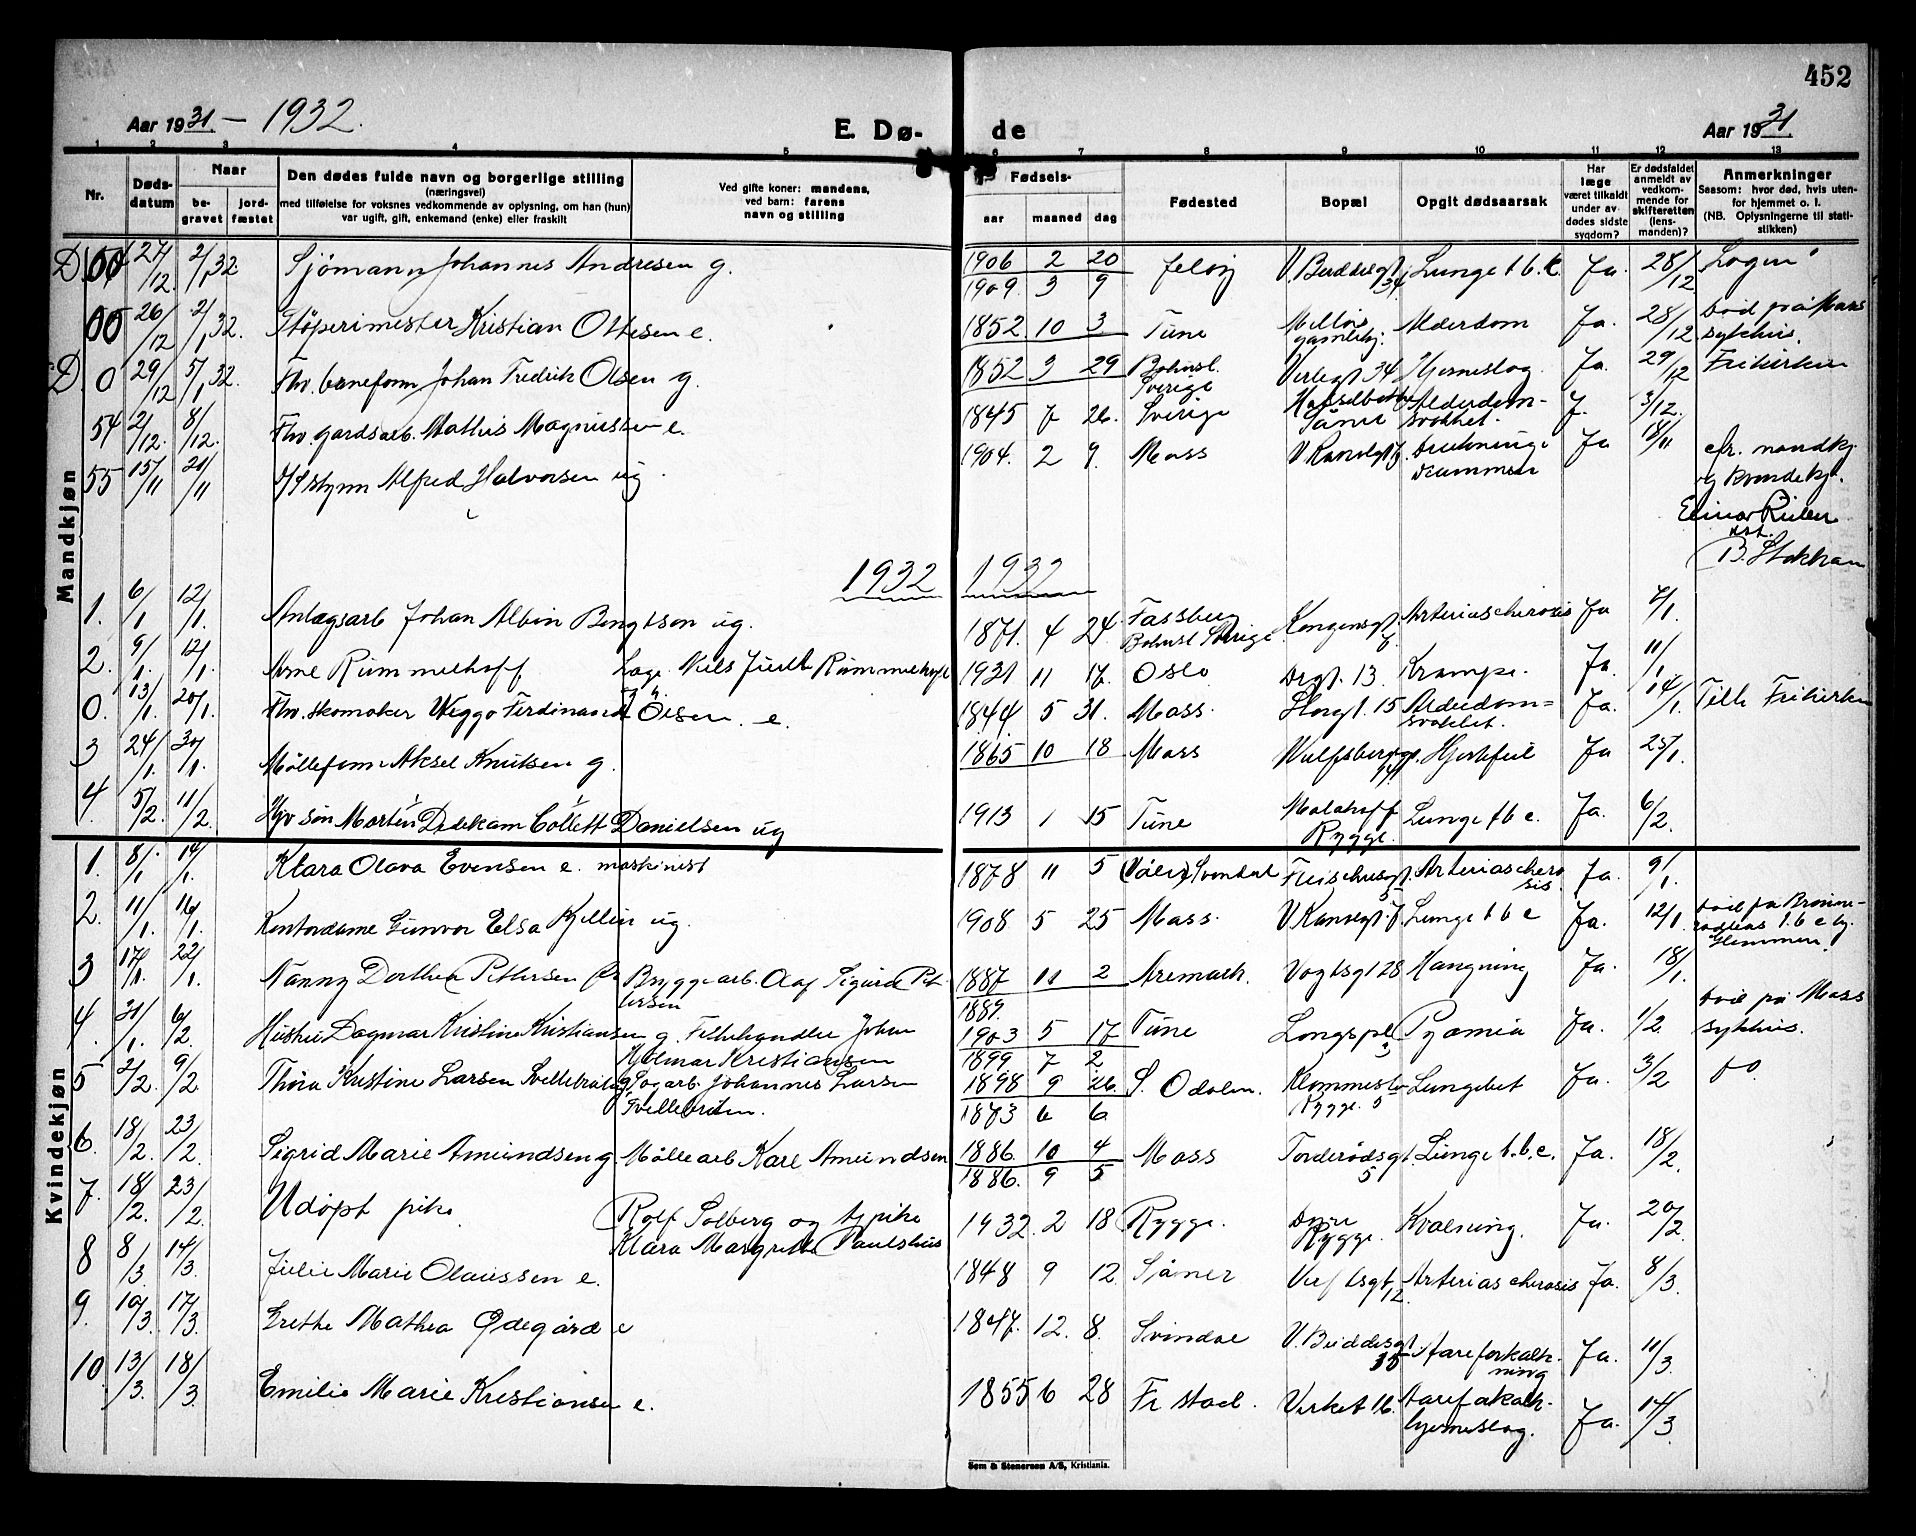 452
Aar 1931. – 1932.
E. Dø-
de
Aar 1931
1 2 3 4 5 6 7 8 9 10 11 12 13
Nr.
Døds-
datum
Naar
be-
gravet
jord-
fæstet
Den dødes fulde navn og borgerlige stilling
(næringsvei)
med tilføielse for voksnes vedkommende av oplysning, om han (hun)
var ugift, gift, enkemand (enke) eller fraskilt
Ved gifte koner: mandens,
ved barn: farens
navn og stilling
Fødsels-
aar maaned dag
Fødested
Bopæl
Opgit dødsaarsak
Har
læge
været tilkaldt
under av-
dødes sidste
sygdom?
Er dødsfaldet
anmeldt av
vedkom-
mende for
skifteretten
(lens-
manden)?
Anmerkninger
Saasom: hvor død, hvis uten-
for hjemmet o. l.
(NB. Oplysningerne til stati-
stikken)
Mandkjøn
D 27/12 2/1 32 Sjömann Johannes Andresen g. 1906 2 20 Jeløy Lunge t.b.c. Ja. 28/12
1909. 3 9 34
26/12 2/1 32. Støperimester Kristian Ottesen e. 1852. 10 3 Tune Alderdom Ja. 28/12 død på Moss
sykehus.
D 0 29/12 5/1 32 Fhv. baneform Johan Fredrik Olsen g. 1852 3 29 Bohusl. Verlegt 34 Hjerneslag. Ja. 29/12 Frikirken
Sverige
54 2/12 8/12. Fhv. gardsarb. Mathis Magnussen e. 1845 7 26. Sverige Såner Alderdom- J. 3/12.
svakhet.
55 15/11 20/11 Alfred Halvorsen ug. 1904. 2 9. Moss Ja 18/11 cfr. mandkj.
og kvindekj.
1932 1932
1. 6/1 12/1. Anlægsarb Johan Albin Bengtson ug. 1871. 4 24. Kongensgt. Arteriascherosis Ja 7/1.
Bohusl Sverige 7
2. 9/1. 12/1. Arne Rummelhoff Læge Niels Juell Rummelhoff 1931 11 17. Oslo Drgt. 13. Krampe. Ja. 11/1
0. 13/1. 20/1. Fhv. skomaker Wiggo Ferdinand Olsen. e. 1844 5 31. Moss. Storgt. 15 Alderdom= Ja. 14/1. Tilh Frikirken
svakhet.
3 24/1. 30/1. Mölleform. Aksel Knutsen g. 1865 10 18 Moss Wulfsberggt. Hjertefeil Ja 25/1.
4. 5/2. 11/2. Hjv søn Morten Dedekam Collett Danielsen ug 1913 1 15 Tune Malakoff Lunge tbc. Ja. 6/2.
Rygge.
Kvindekjøn
1. 8/1. 14/1. Klara Olava Evensen e. maskinist 1878 11 5 (Våler) Svindal Arteriaschero Ja. 9/1.
sis.
2. 11/1. 16/1. Kontordame Gunvor Elsa Kjellin ug. 1908. 5 25 Moss. Lunge t b c Ja. 12/1. død på
t.b.c hj.
Glemmen.
3 17/1. 22/1. Nanny Dorthea Pettersen Bryggearb. Olaf Sigurd Pet- 1887 11 2 Aremark. Vogtsgt 28 Hangning Ja. 18/1.
tersen 1889.
4. 31/1. 6/2. Hustru Dagmar Kristine Kristiansen g. Fellehandler Johan 1903 5 17 Tune Longspl. Pyæmia Ja. 1/2. död på Moss
Hjelmar Kristiansen 1899 7 2 3 sykehus.
5 2/2. 9/2 Thora Kristine Larsen Svellebråten g. Sagarb. Johannes Larsen 1898 9 26. S. Odalen. Lungebet Ja. 3/2 do.
Svellebråten. 1873 6 6 Rygge.
6. 18/2. 23/2. Sigrid Marie Amundsen g. Møllearb Karl Amundsen 1886. 10 4 Moss Torderødsgt. Lunge t.b.c. Ja. 18/2.
1886. 9 5 5
7. 18/2. 23/2. Udøpt pike. Rolf Solberg og 1932. 2 18 Rygge. Dyre Kvælning. Ja. 20/2.
Klara Margrethe Paulshus Rygge.
8 8/3 14/3. Julie Marie Olaussen e. 1848 9 12. Såner Verftsgt Arteriascherosis Ja. 8/3.
12.
9. 10/3. 17/3. Grethe Mathea Ødegård e 1847. 12. 8. Svindal V. Buddesgt Aareforkalk- Ja. 11/3.
35 ning
10. 13/3. 18/3. Emilie Marie Kristiansen e. 1855 6 28 Fr stad. Verket 16. Aareforkalk- Ja. 14/3.
hjerneslag.
Sem & Stenersen A/S, Kristiania.